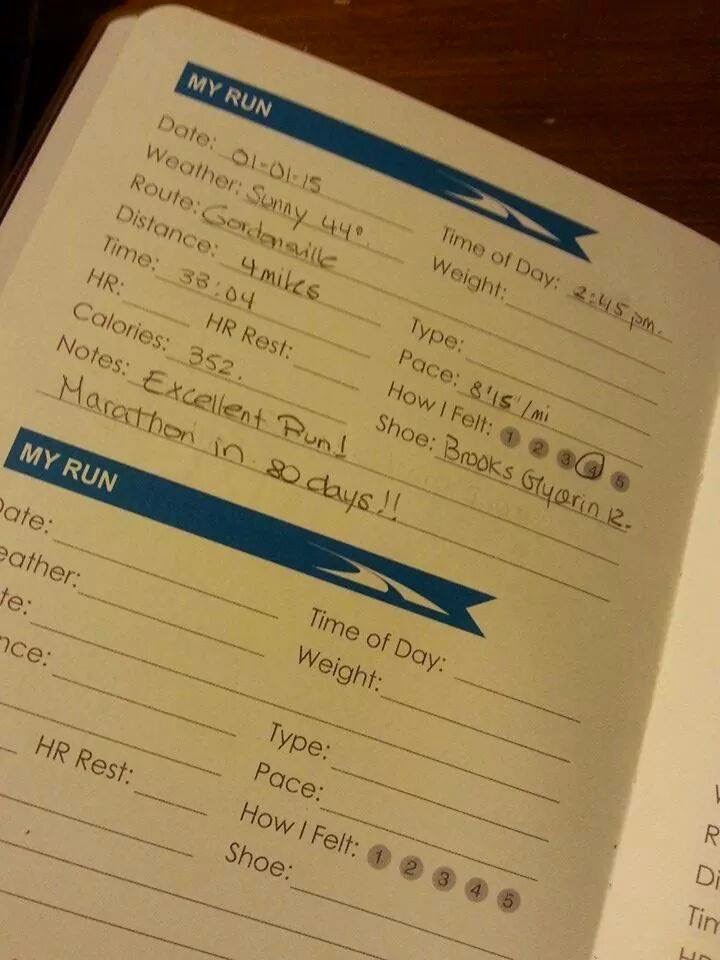 MY RUN
Date: 01-01-15
Time of Day: 2:45 pm.
Weather: Sunny 44°
Weight:
Route: Gordonsville
Distance: 4 miles
Type:
Time: 33:04
Pace: 8'15"/mi
HR: HR Rest:
How I Felt: 1 2 3 4 5
Calories: 352.
Shoe: Brooks Glycerin 12.
Notes: Excellent Run!
Marathon in 80 days!!
MY RUN
Date:
Time of Day:
eather:
Weight:
te:
nce:
Type:
Pace:
HR Rest:
How I Felt: 1 2 3 4 5
Shoe:
R
Di
Tim
HR